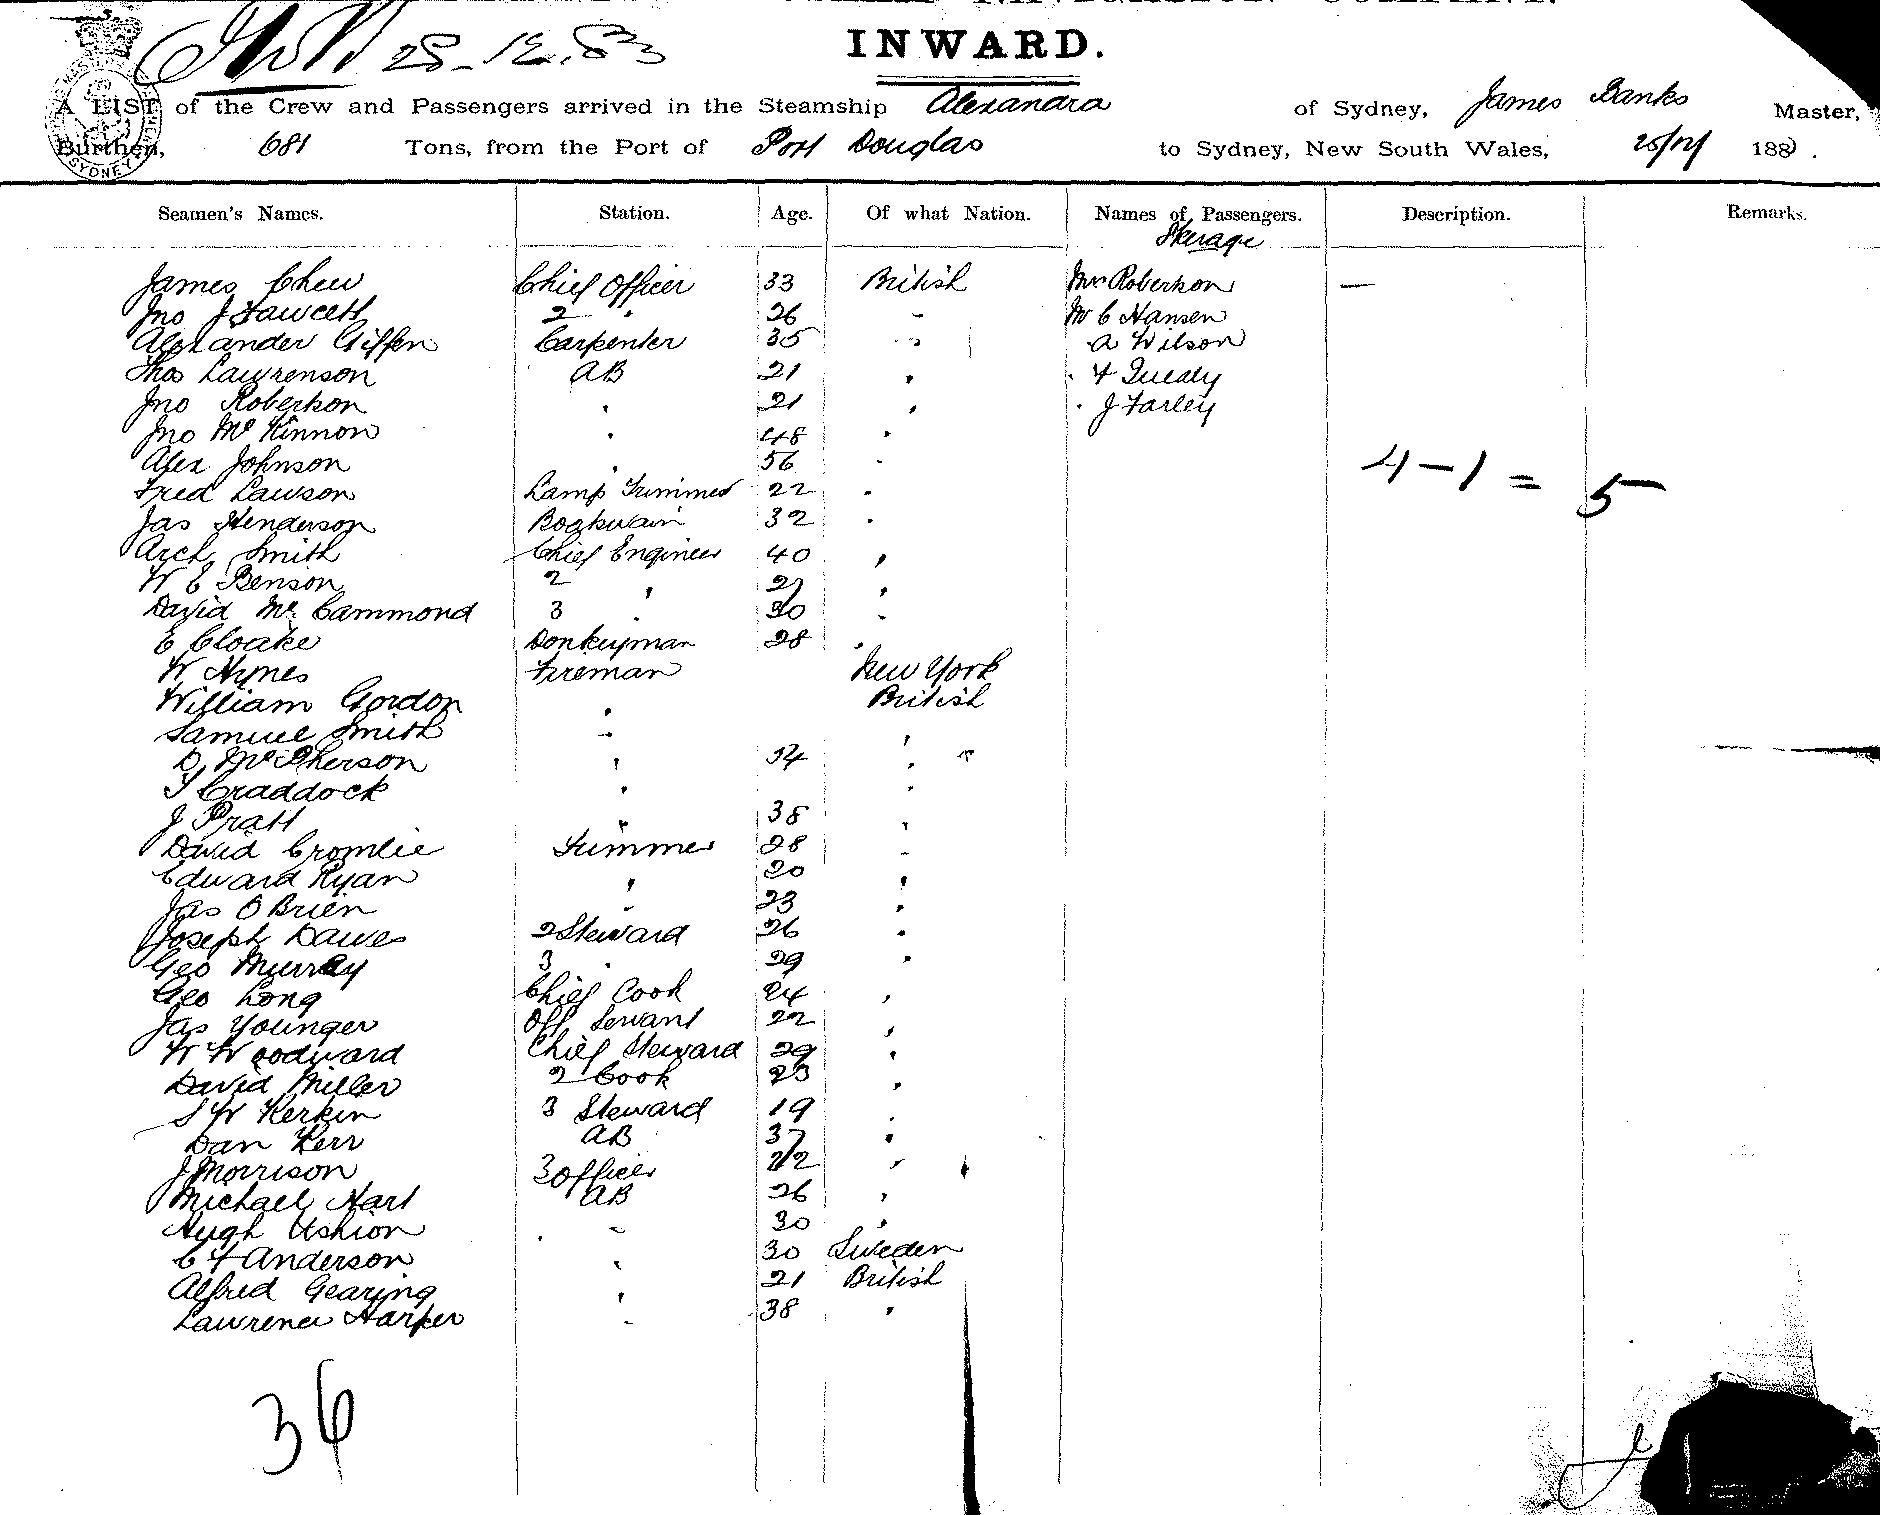 28.12.83
INWARD.
A LIST of the Crew and Passengers arrived in the Steamship Alexandra of Sydney, James Banks Master,
Burthen, 681 Tons, from the Port of Port Douglas to Sydney, New South Wales, 188
Seamen's Names. Station. Age. Of what Nation. Names of Passengers. Description. Remarks.
Sterage
James Chew Chief Officer 33 British Mrs Robertson —
Jno J Fawcett 2 " 26 " Mr C Hansen
Alexander Giffen Carpenter 35 " " A Wilson
Thos Lawrenson AB 21 " " F Tueddy
Jno Robertson " 21 " " J Farley
Jno McKinnon " 48 "
Alex Johnson " 56 "
4 — 1 = 5
Fred Lawson Lamp Trimmer 22 "
Jas Henderson Boatswain 32 "
Arch Smith Chief Engineer 40 "
W E Benson 2 " 27 "
David McCammond 3 " 30 "
E Cloake Donkeyman 28 "
W Hynes Fireman New York
William Gordon " British
Samuel Smith " "
D McPherson " 54 " "
T Craddock " "
J Pratt " 38 "
David Cromlie Trimmer 28 "
Edward Ryan " 20 "
Jas O Brien " 23 "
Joseph Dawes 2 Steward 26 "
Geo Murray 3 " 29 "
Geo Long Chief Cook 24 "
Jas Younger Off Servant 22 "
W Woodward Chief Steward 29 "
David Miller 2 Cook 23 "
S W Kerkin 3 Steward 19 "
Dan Kerr AB 37 "
J Morrison 3 Officer 22 "
Michael Hart AB 26 "
Hugh Ushion " 30 "
C F Anderson " 30 Sweden
Alfred Gearing " 21 British
Lawrence Harper " 38 "
36